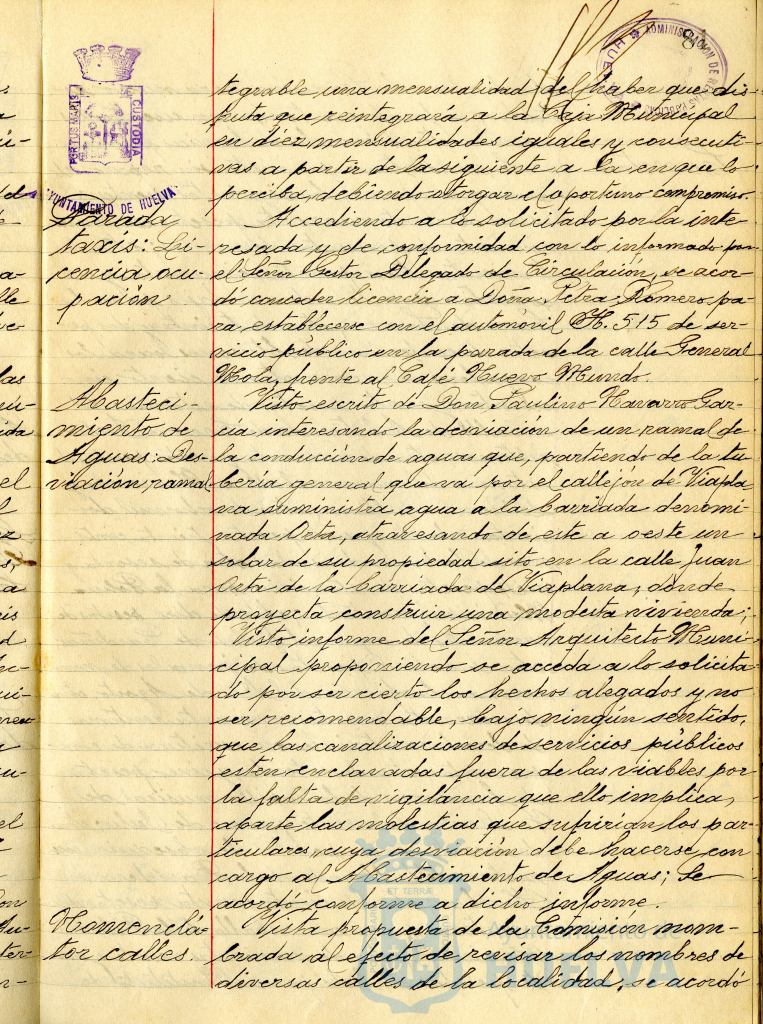 84
ADMINISTRACION DE
PORTUS MARIS
CUSTODIA
AYUNTAMIENTO DE HUELVA
tegrable una mensualidad del haber que dis-
fruta que reintegrará a la Caja Municipal
en diez mensualidades iguales y consecuti-
vas a partir de la siguiente a la en que lo
perciba, debiendo otorgar el oportuno compromiso.
Parada
taxis: Li-
cencia ocu-
pación
Accediendo a lo solicitado por la inte-
resada y de conformidad con lo informado por
el Señor Gestor Delegado de Circulación, se acor-
dó conceder licencia a Doña Petra Romero, pa-
ra establecerse con el automóvil H. 515 de ser-
vicio público en la parada de la calle General
Mola, frente al Café Nuevo Mundo.
Abasteci-
miento de
Aguas: Des-
viación, ramal
Visto escrito de Don Paulino Navarro Gar-
cía interesando la desviación de un ramal de
la conducción de aguas que, partiendo de la tu-
bería general que va por el callejón de Viapla-
na suministra agua a la barriada denomi-
nada Orta, atravesando de este a oeste un
solar de su propiedad sito en la calle Juan
Orta de la barriada de Viaplana, donde
proyecta construir una modesta vivienda;
Visto informe del Señor Arquitecto Muni-
cipal proponiendo se acceda a lo solicita-
do por ser cierto los hechos alegados y no
ser recomendable, bajo ningún sentido,
que las canalizaciones de servicios públicos
estén enclavadas fuera de las viables por
la falta de vigilancia que ello implica,
aparte las molestias que sufrirían los par-
ticulares, cuya desviación debe hacerse con
cargo al Abastecimiento de Aguas; Se
acordó conforme a dicho informe.
Nomenclá-
tor calles.
Vista propuesta de la Comisión nom-
brada al efecto de revisar los nombres de
diversas calles de la localidad, se acordó
Ayuntamiento de
HUELVA